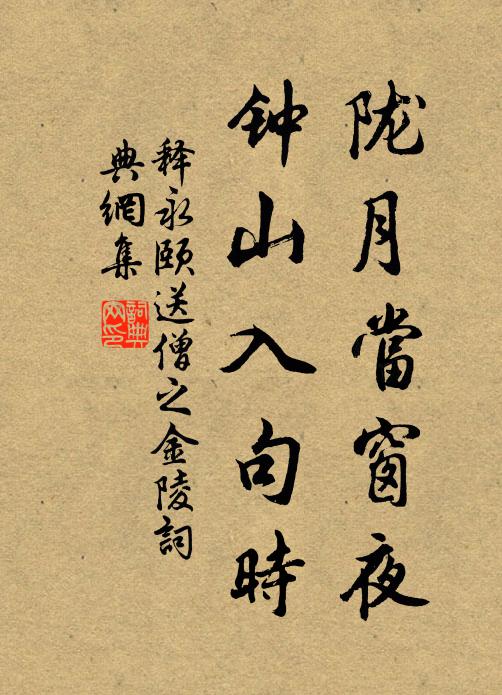 陇月當窗夜
钟山入句時
释永頤送僧之金陵詞
典網集
詞典
网印